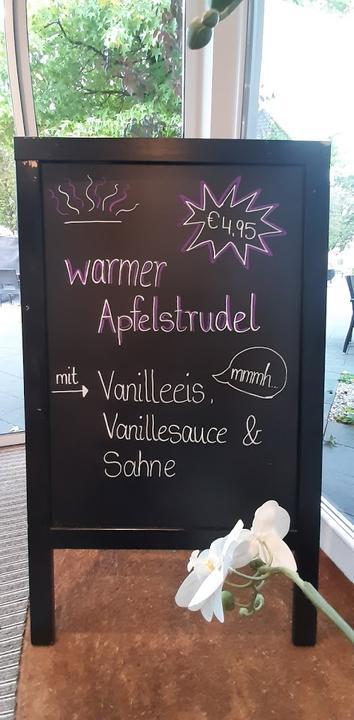 € 4,95
warmer
Apfelstrudel
mmmh..
mit → Vanilleeis,
Vanillesauce &
Sahne